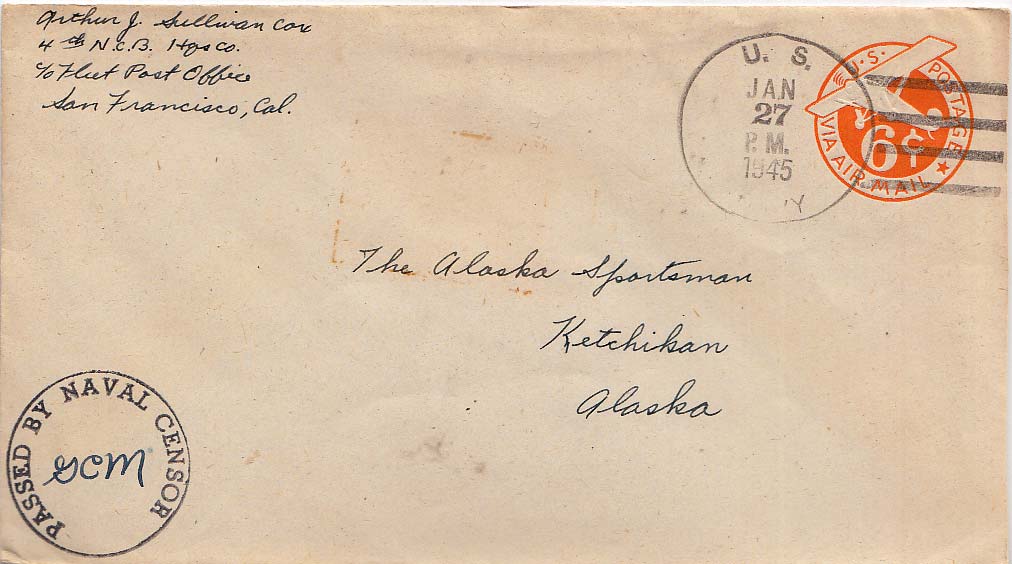 Arthur J. Sullivan Cox
4th N.C.B. Hqs Co.
c/o Fleet Post Office
San Francisco, Cal.
U. S.
JAN
27
P.M.
1945
U.S. POSTAGE
6¢
VIA AIR MAIL
The Alaska Sportsman
Ketchikan
Alaska
PASSED BY NAVAL CENSOR
GCM